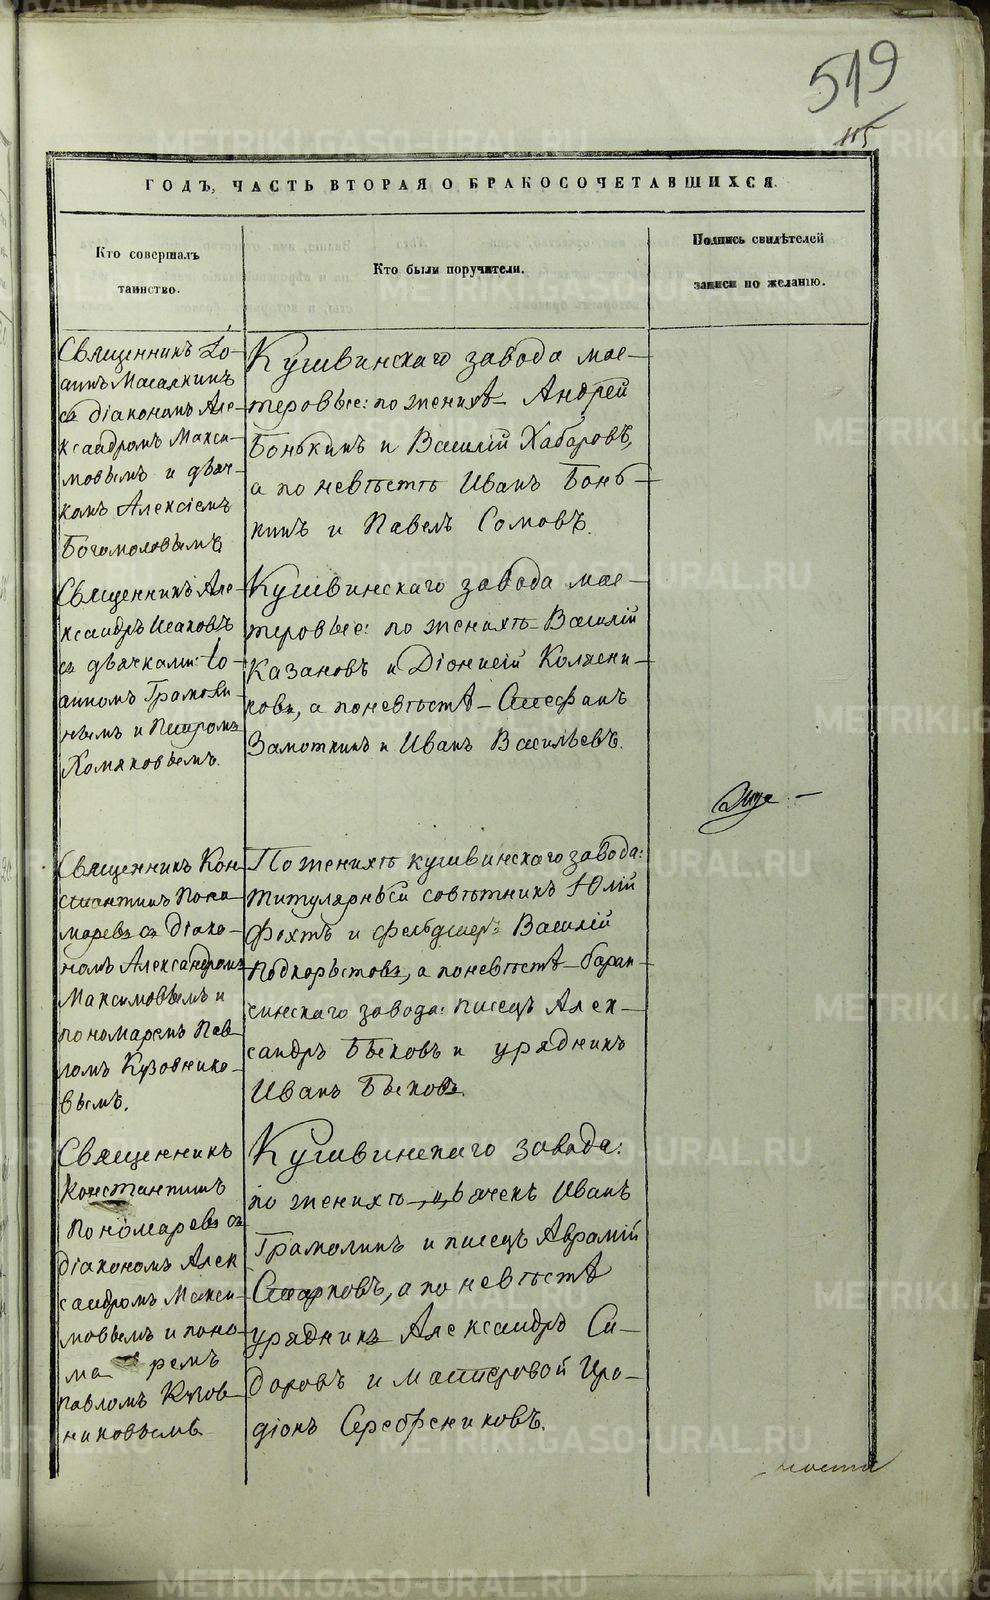 519
115
ГОДЪ, ЧАСТЬ ВТОРАЯ О БРАКОСОЧЕТАВШИХСЯ.
Кто совершалъ
таинство.
Кто были поручители.
Подпись свидѣтелей
записи по желанію.
Священникъ Іо-
аннъ Масалкинъ
съ діакономъ Але-
ксандромъ Макси-
мовымъ и дьяч-
комъ Алексіемъ
Богомоловымъ
Кушвинскаго завода мас-
теровые: по женихѣ Андрей
Бонькинъ и Василій Хабаровъ,
а по невѣстѣ Иванъ Бонь-
кинъ и Павелъ Сомовъ.
Священникъ Але-
ксандръ Исаковъ
съ дьячками: Іо-
анномъ Грамоли-
нымъ и Петромъ
Хомяковымъ.
Кушвинскаго завода мас-
теровые: по женихѣ Василій
Казановъ и Діонисій Колясни-
ковъ, а по невѣстѣ Стефанъ
Замоткинъ и Иванъ Васильевъ.
Священникъ Кон-
стантинъ Поно-
маревъ съ діако-
номъ Александромъ
Максимовымъ и
пономаремъ Пав-
ломъ Кузовнико-
вымъ.
По женихѣ кушвинскаго завода:
титулярный совѣтникъ Юлій
Фохтъ и фельдшеръ Василій
Подкорытовъ, а по невѣстѣ баран-
чинскаго завода: писецъ Алек-
сандръ Быковъ и урядникъ
Иванъ Быковъ.
Священникъ
Константинъ
Пономаревъ съ
діакономъ Алек
сандромъ Макси-
мовымъ и поно-
ма ремъ
Павломъ Кузов-
никовымъ
Кушвинскаго завода:
по женихѣ Иванъ
Грамолинъ и писецъ Аврамій
Старковъ, а по невѣстѣ
урядникъ Александръ Си-
доровъ и мастеровой Иро-
діонъ Серебрениковъ.
части
METRIKI.GASO-URAL.RU